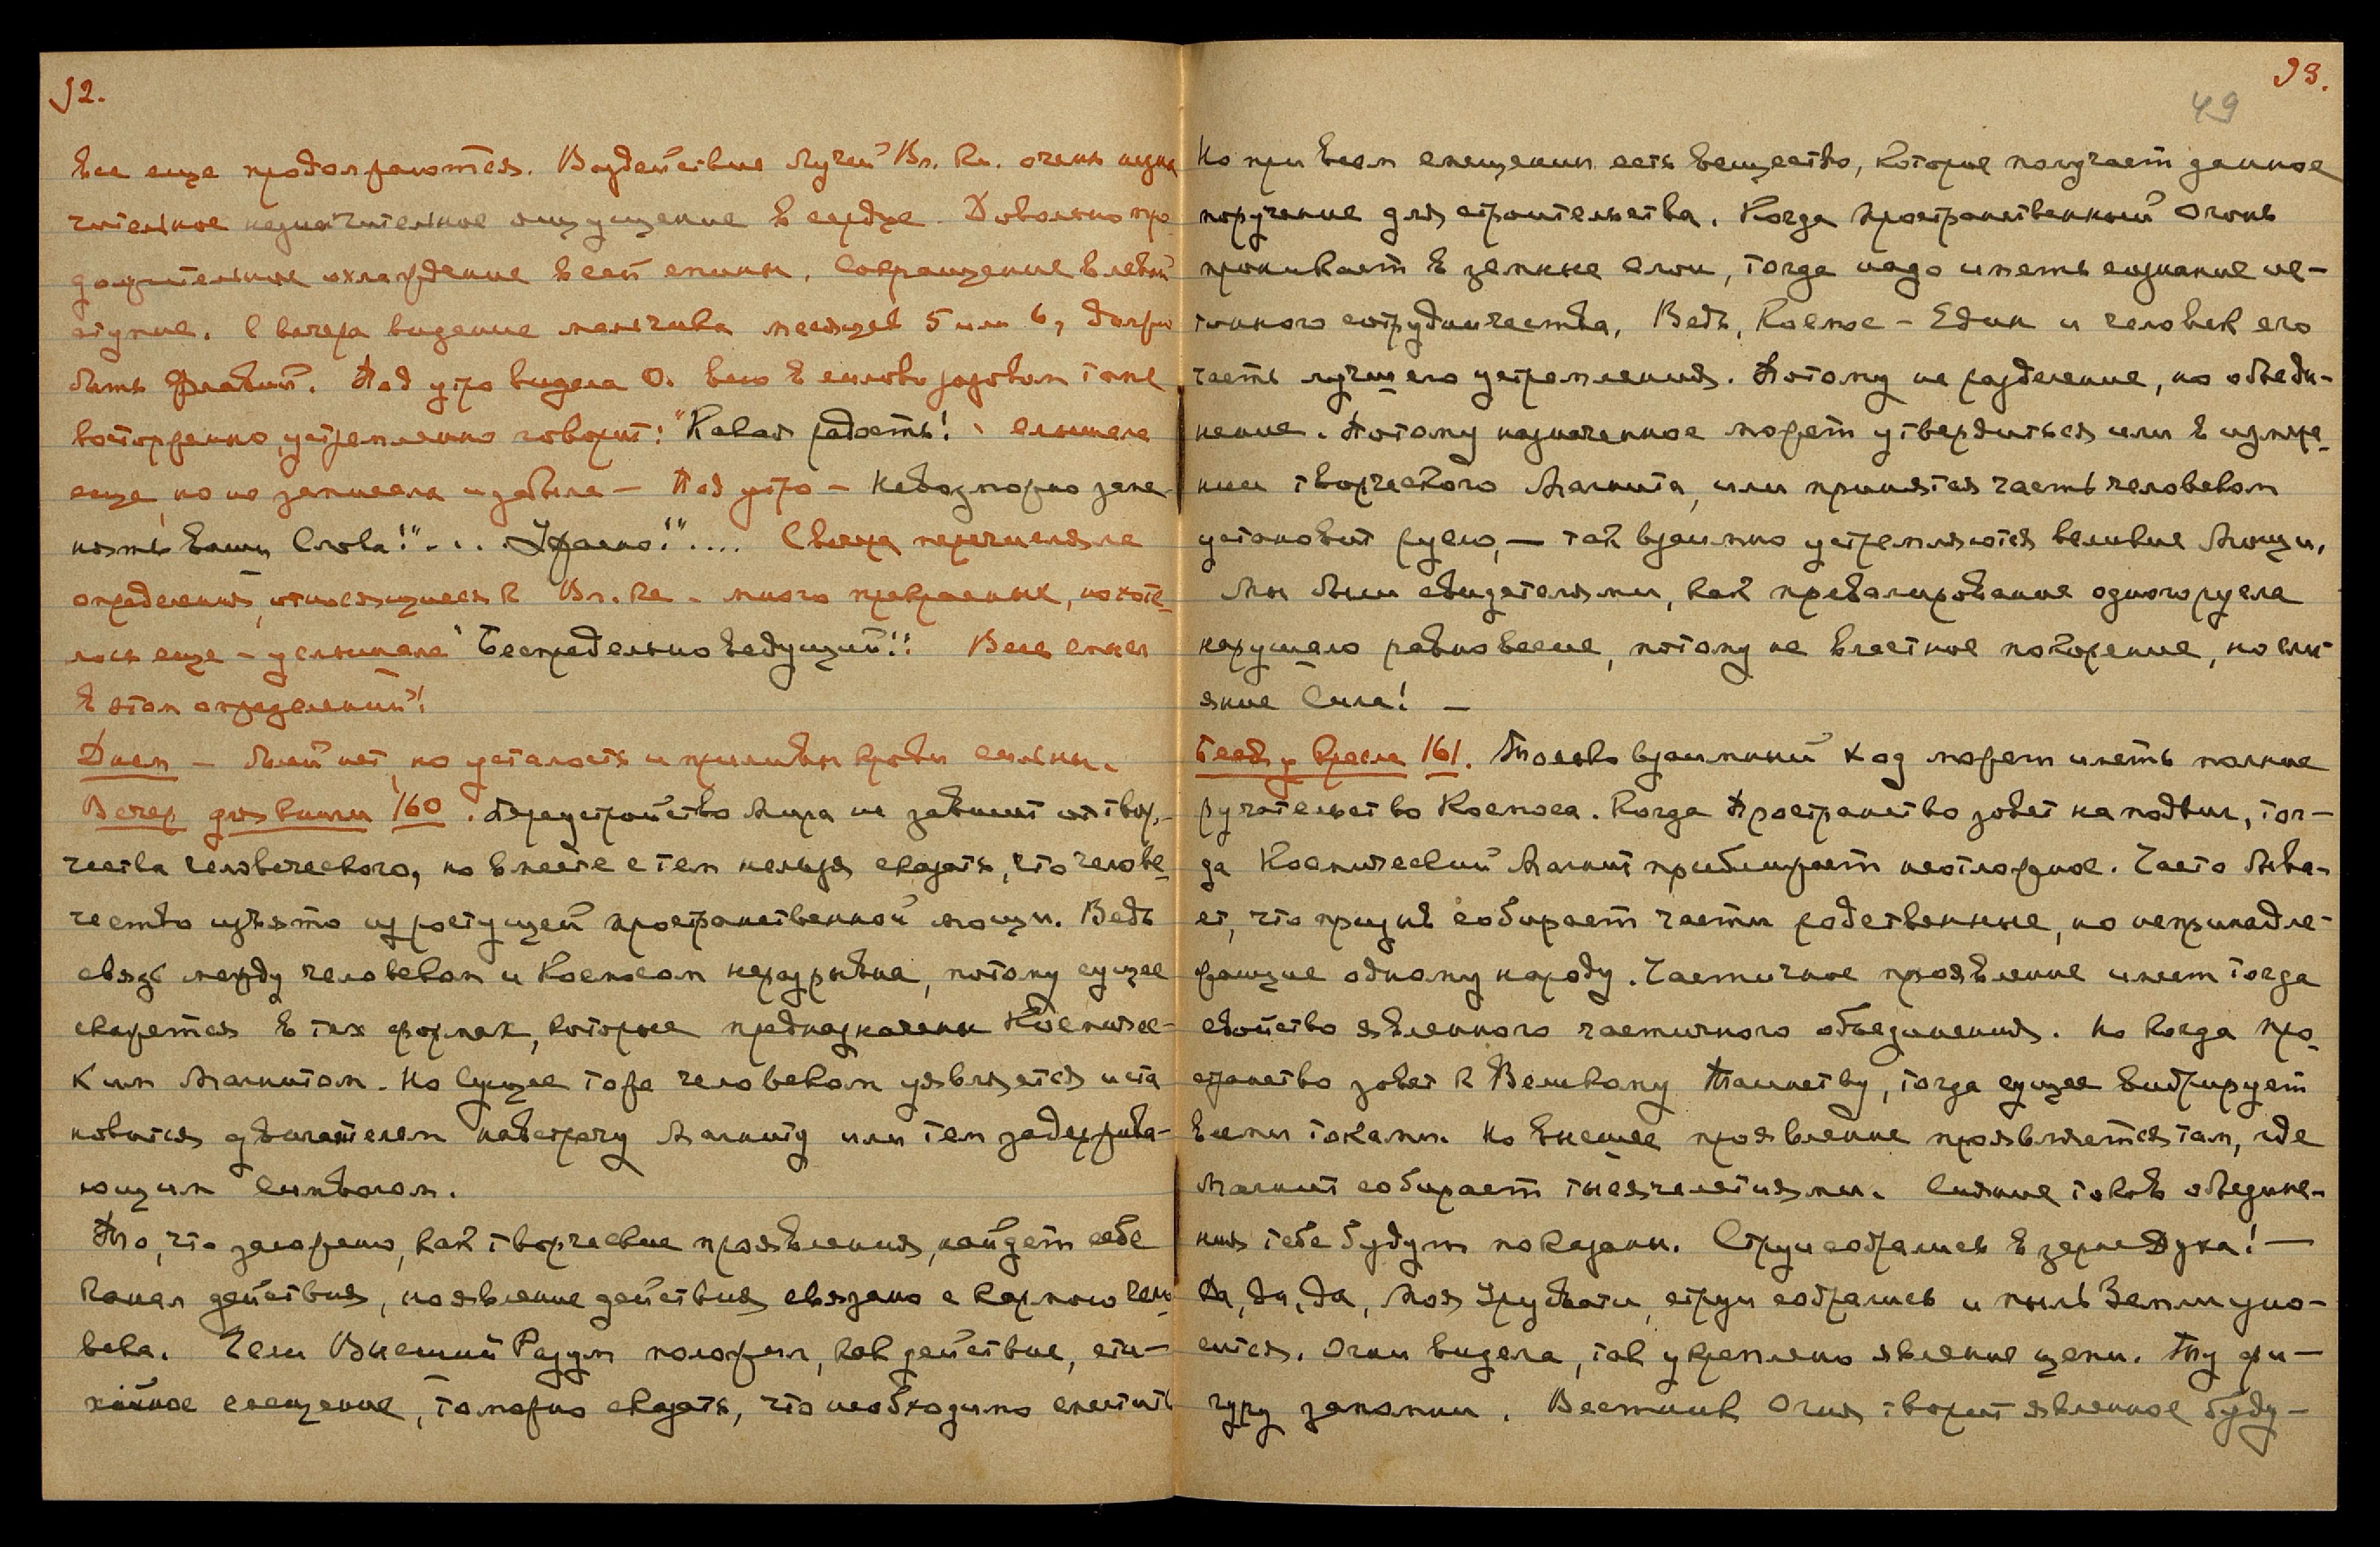 92.
все еще продолжаются. Воздействие Лучей Вл. Вл. очень незна
чительное незначительное ощущение в сердце. Довольно про
должительное охлаждение всей спины, сокращение в левой
ступне. С вечера видение мальчика месяцев 5 или 6, должно
быть Флавий. Под утро видела О. всю в лилово розовом тоне
восторженно, устремленно говорит: "Какая радость!" слышала
еще, но не записала и забыла — Под утро — Невозможно запе-
нять Ваши Слова!".... Ужасно!".... Свыше перечисляла
определения, относящиеся к Вл. Вл. - много прекрасных, но хоте-
лось еще — услышала "Беспредельно Ведущий"! Весь смысл
в этом определении"!
Днем — болей нет, но усталость и приливы крови сильны.
Вечер для книги 160. Переустройство Мира не зависит от твор-
чества человеческого, но вместе с тем нельзя сказать, что челове-
чество изъято из растущей пространственной мощи. Ведь
связь между человеком и Космосом неразрывна, потому сущее
скажется в тех формах, которые предназначены Космичес-
ким Магнитом. Но Сущее тоже человеком уявляется и ста
новится двигателем навстречу Магниту или тем задержива-
ющим символом.
То, что заложено, как творческие проявления, найдет себе
канал действия, но явление действия связано с кармою чело
века. Если Высший Разум положил, как действие, сти-
хийное смещение, то можно сказать, что необходимо сместить
93.
49
Но при всем смещении есть вещество, которое получает данное
поручение для строительства. Когда пространственный Огонь
проникает в земные слои, тогда надо иметь сознание ис-
тинного сотрудничества. Ведь, Космос — Един и человек его
часть лучшего устремления. Потому не разделение, но объеди-
нение. Потому назначенное может утвердиться или в излуче-
нии творческого Магнита, или принятая часть человеком
установит русло, — так взаимно устремляются великие Мощи.
Мы были свидетелями, как превалирование одного русла
нарушало равновесие, потому не властное покорение, но сли-
яние Сила! —
Беседа у кресла 161. Только взаимный ход может иметь полное
ручательство Космоса. Когда Пространство зовет на подвиг, тог-
да Космический Магнит приближает неотложное. Часто быва-
ет, что призыв собирает части родственные, но непринадле-
жащие одному народу. Частичное проявление имеет тогда
свойство явленного частичного объединения. Но когда про-
странство зовет к Великому Таинству, тогда сущее вибрирует
всеми токами. Но высшее проявление проявляется там, где
Магнит собирает тысячелетиями. Сияние токов объедине-
ния тебе будут показаны. Струи собрались в зерне Духа! —
Да, да, да, Моя Урусвати, струи собрались и пыль Земли уно-
сится. Огни видела, так укреплено явление цепи. Ту фи-
гуру запомни. Вестник Огня творит явленное буду-